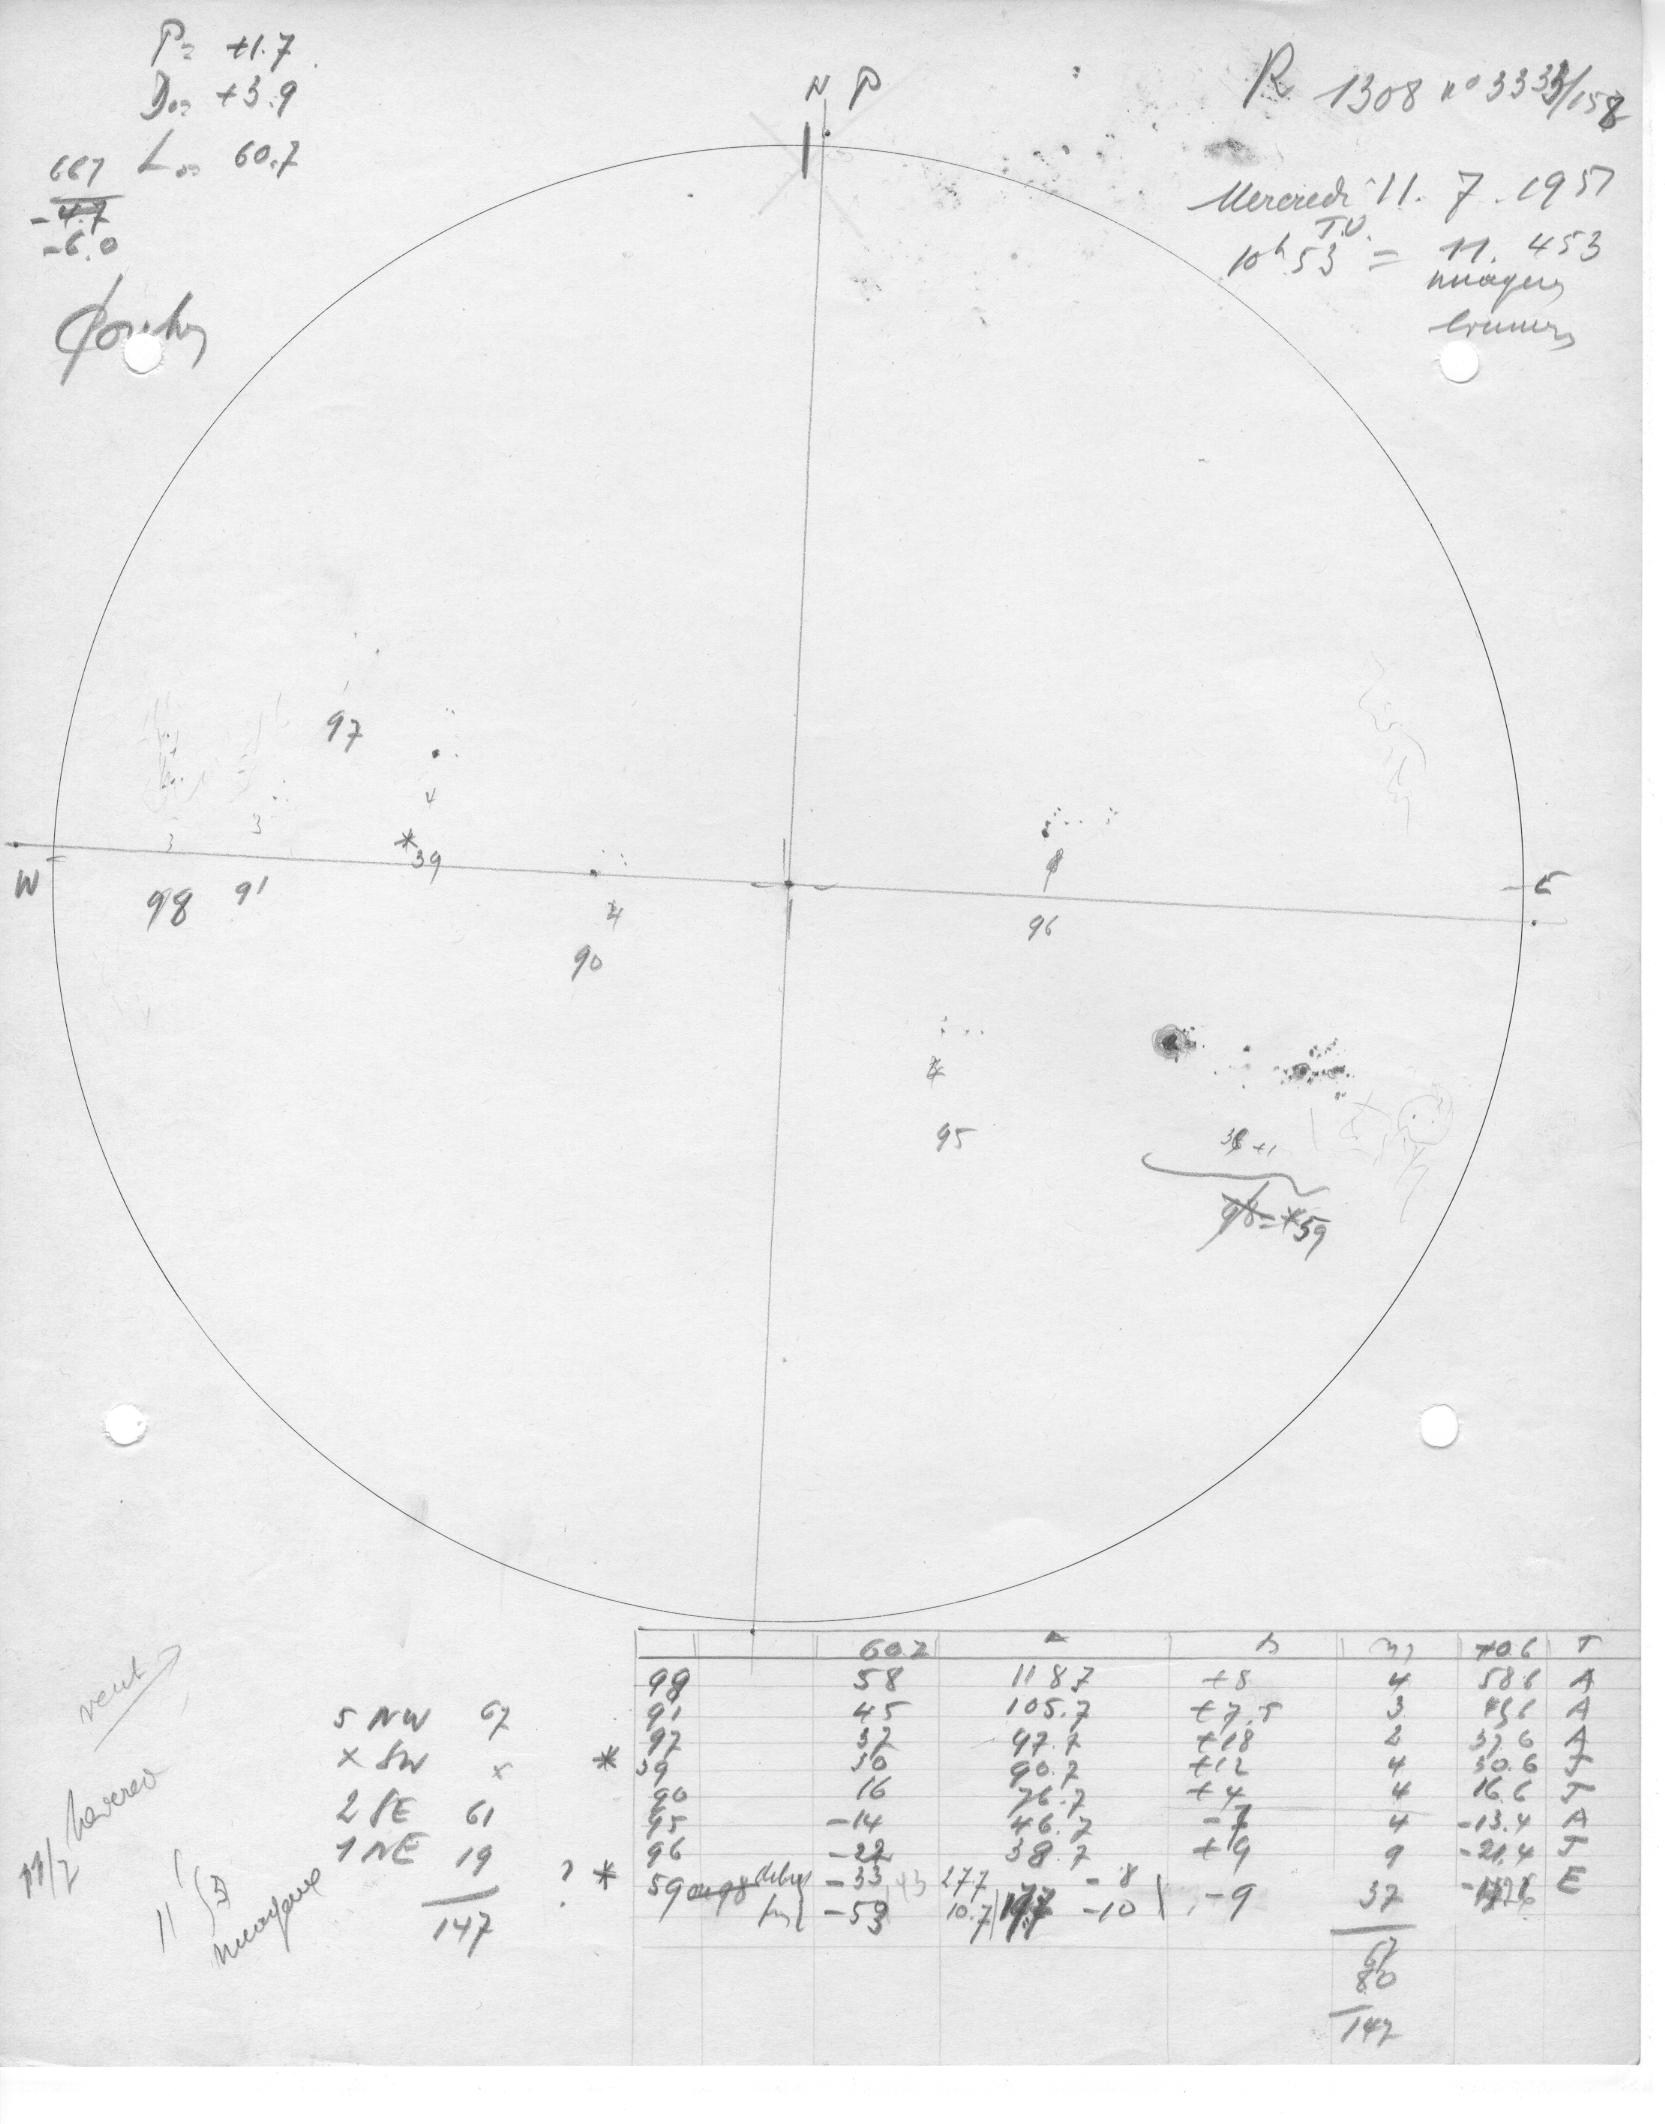 P= +1.7
D= +3.9
L= 60.7
667
-4.7
-6.0
N P
R 1308 n° 3333/158
Mercredi 11. 7. 1951
T.U.
10h 53 = 11. 453
nuages
brumes
97
4
*39
3
3
98
91
W
E
4
90
96
95
+1
98=*59
vent
5 NW 67
x SW x
2 SE 61
1 NE 19
147
11/7
nuageux
60.7 L b 70.6 T
98 58 118.7 +8 4 58.6 A
91 45 105.7 +7.5 3 45.6 A
97 37 97.7 +18 2 37.6 A
* 39 30 90.7 +12 4 30.6 J
90 16 76.7 +4 4 16.6 J
95 -14 46.7 -7 4 -13.4 A
96 -22 38.7 +9 9 -21.4 J
? * 59 début -33 43 27.7 -8 -9 37 E
fin -53 10.7 -10
67
80
147